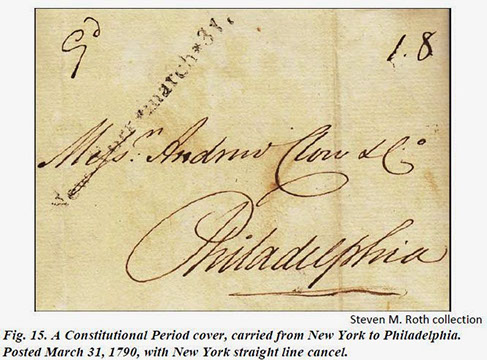 Gd
1.8
New-York*march*31.
Messrs. Andrew Clow & Co
Philadelphia
Steven M. Roth collection
Fig. 15. A Constitutional Period cover, carried from New York to Philadelphia.
Posted March 31, 1790, with New York straight line cancel.